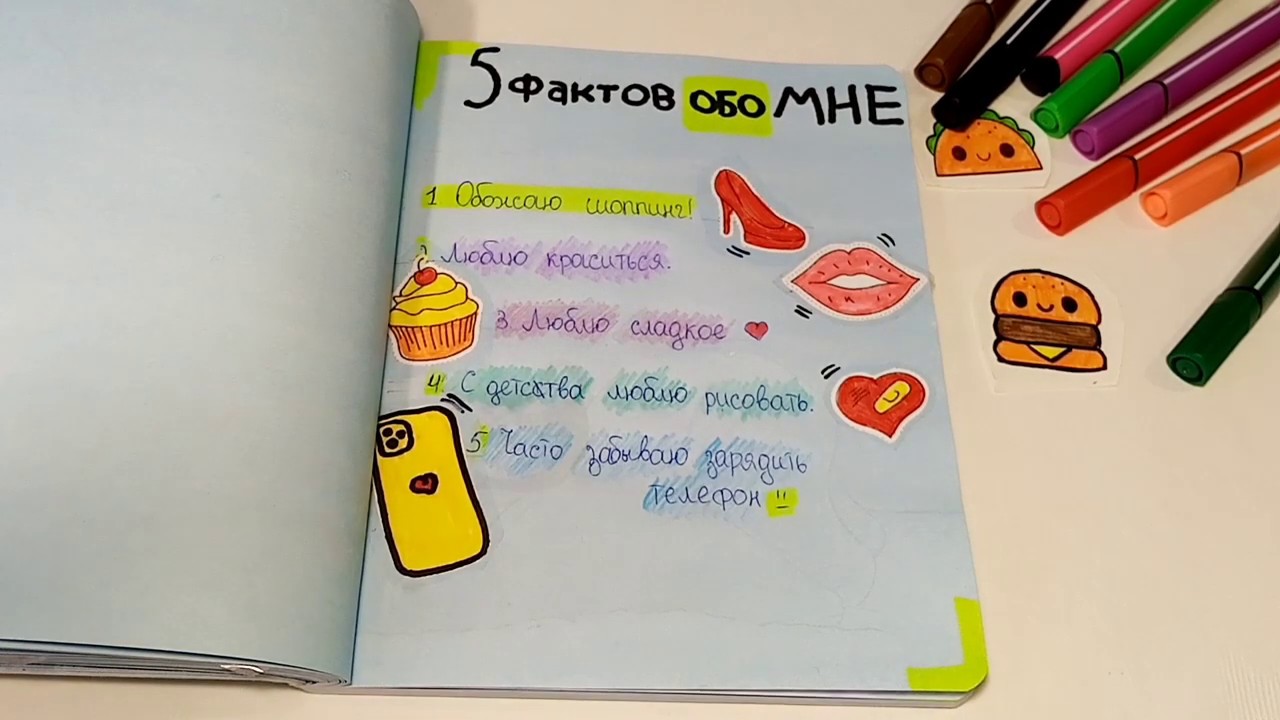 5 Фактов ОБО МНЕ
1 Обожаю шоппинг!
2 Люблю краситься.
3 Люблю сладкое
4 С детства люблю рисовать.
5 Часто забываю зарядить
телефон